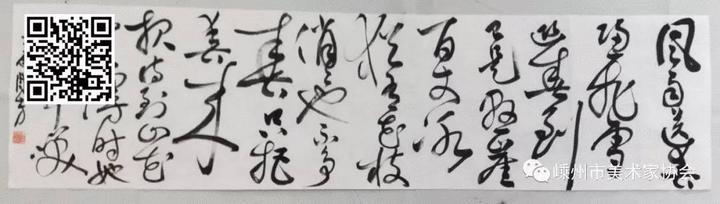 风雨送春
归飞雪
迎春到
已是悬崖
百丈冰
犹有花枝
俏也不争
春只把
春来
报待到山花
漫时她
中笑
嵊州市美术家协会